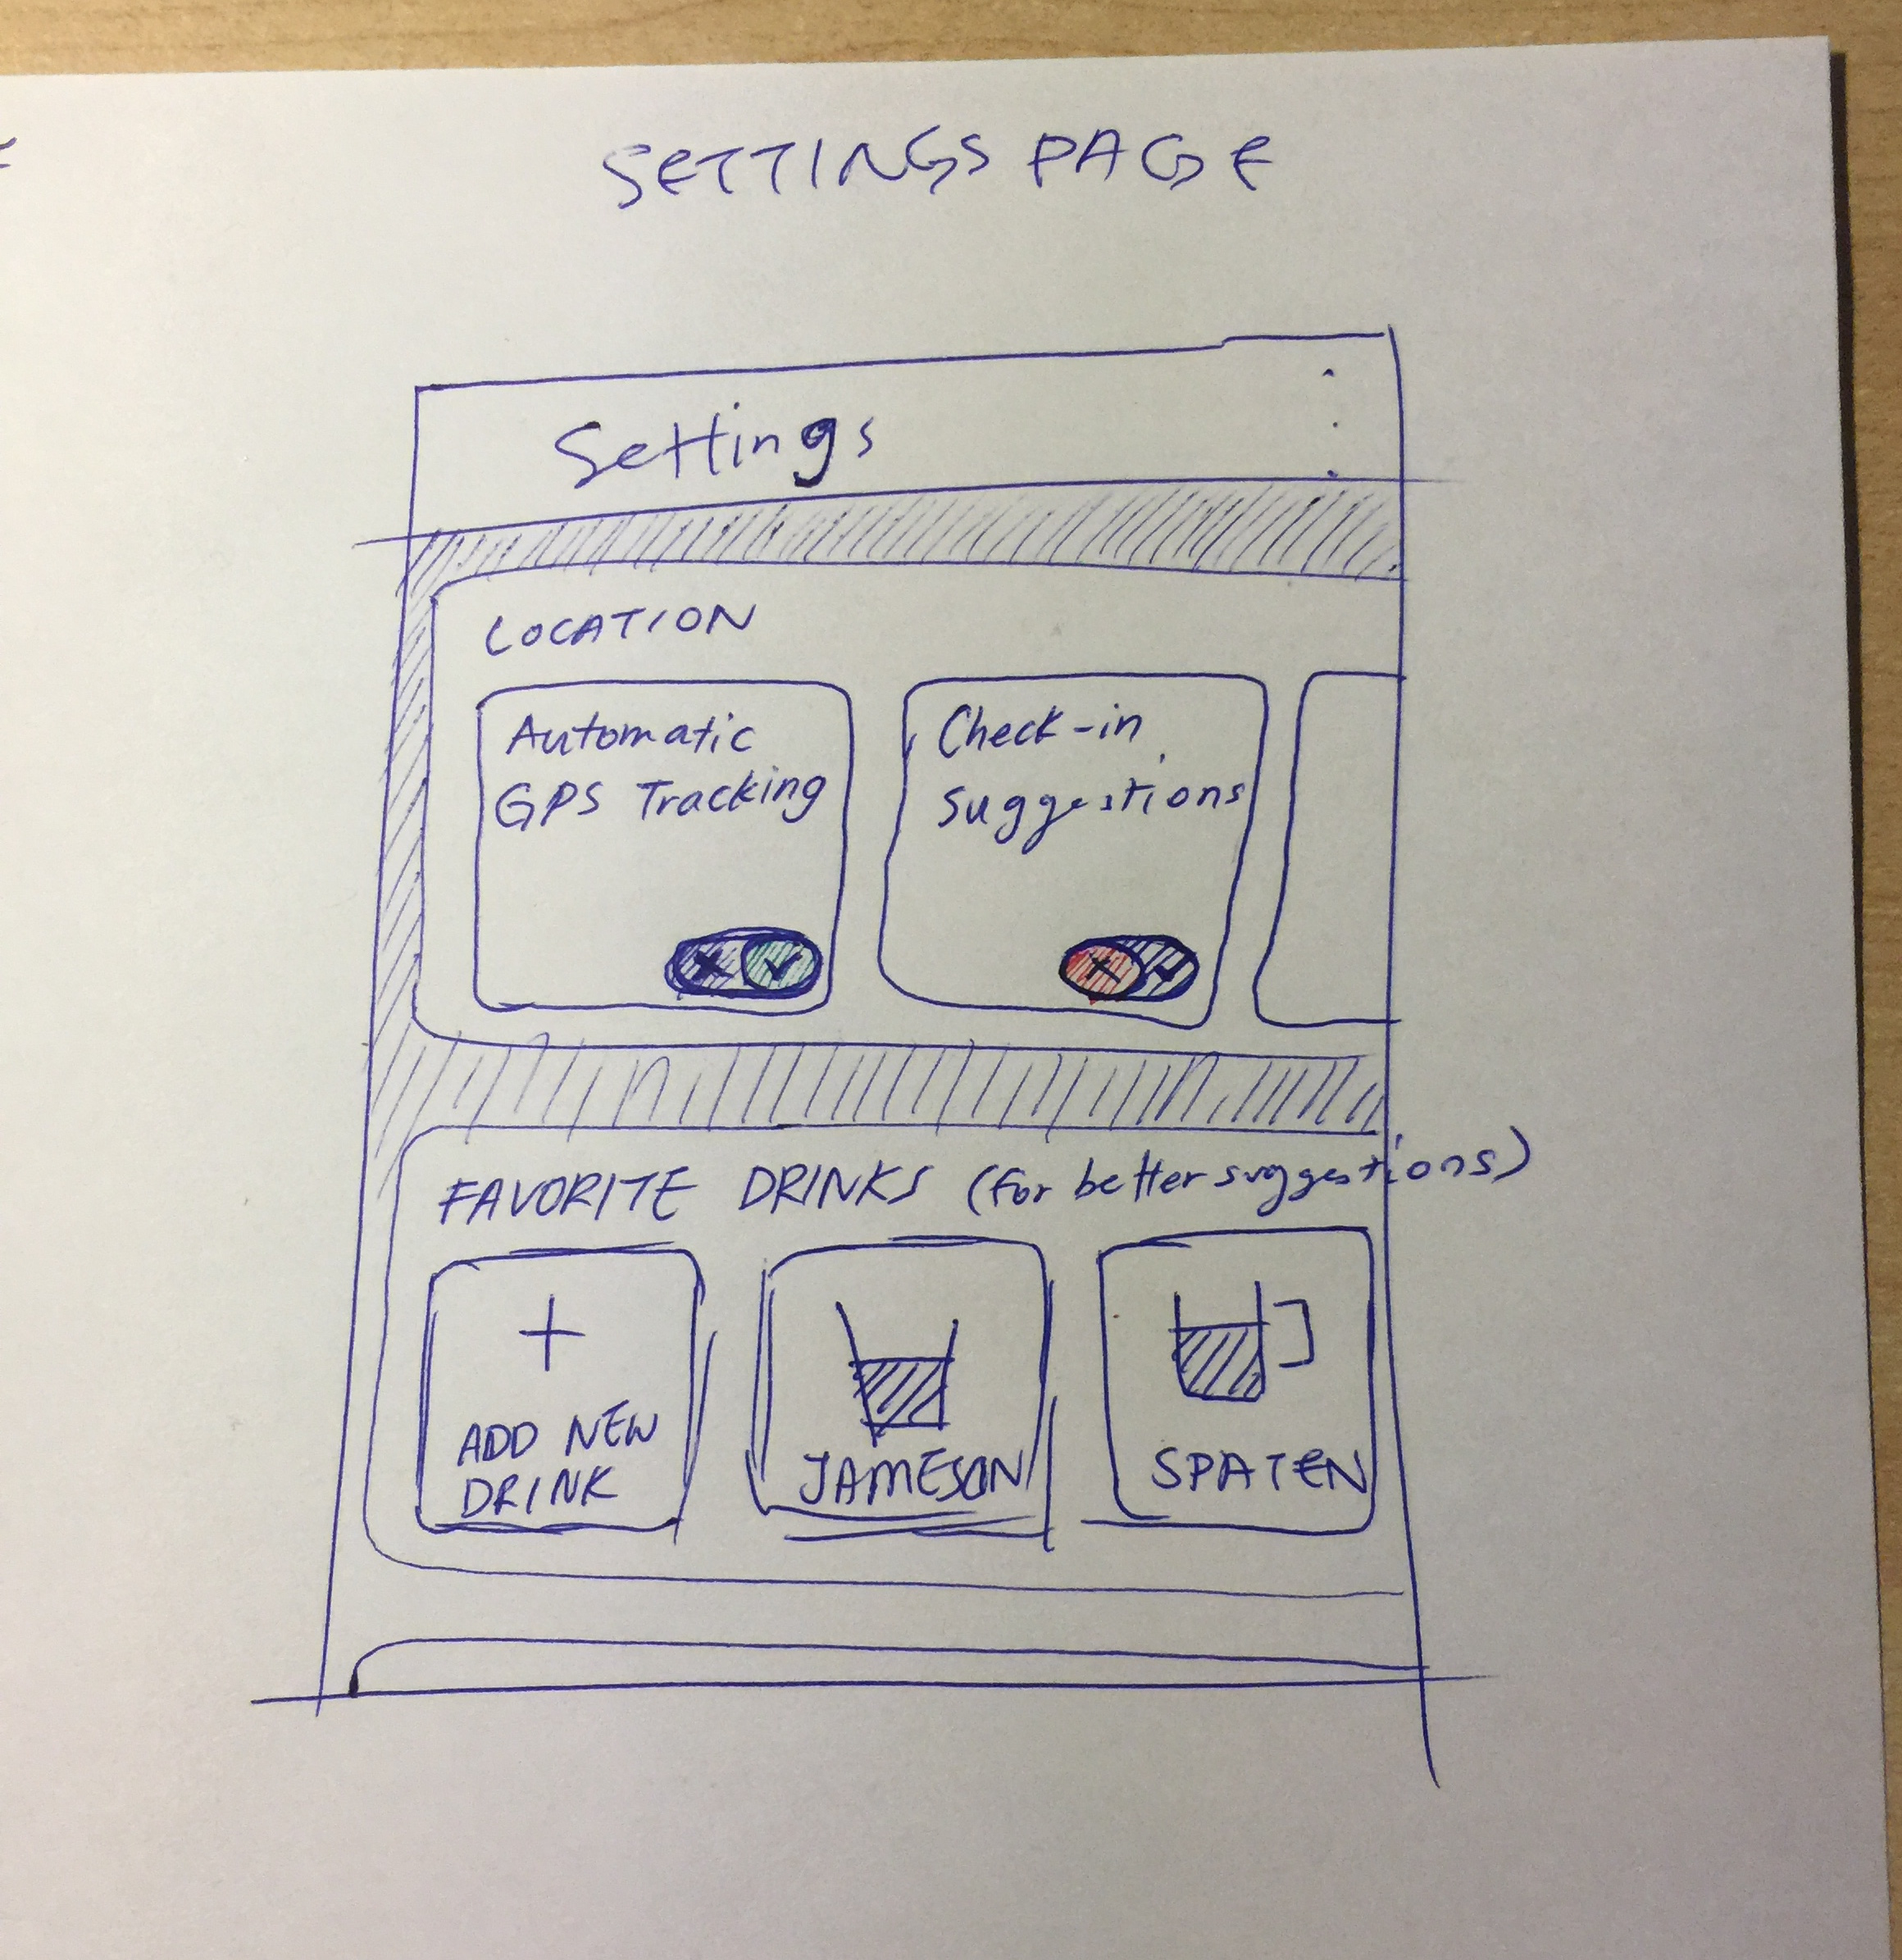 SETTINGS PAGE
Settings
LOCATION
Automatic
GPS Tracking
Check-in
suggestions
FAVORITE DRINKS (for better suggestions)
ADD NEW
DRINK
JAMESON
SPATEN